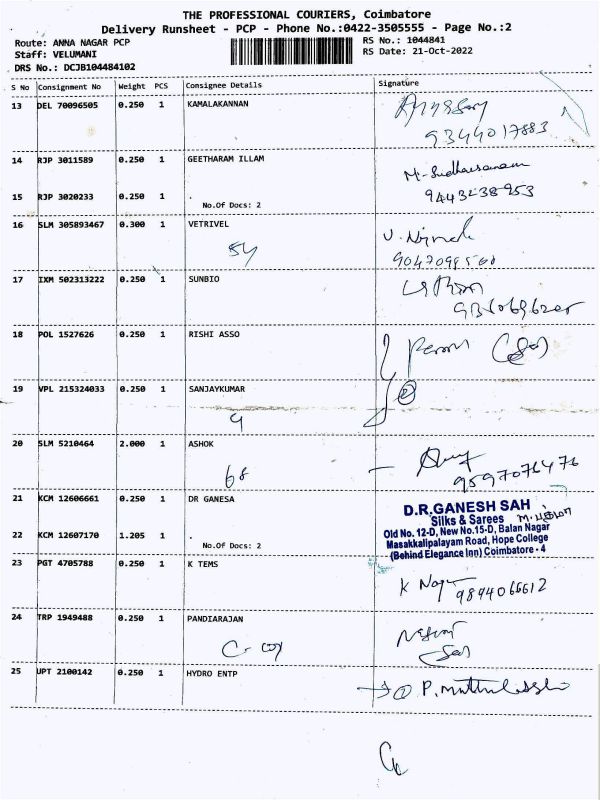 THE PROFESSIONAL COURIERS, Coimbatore
Delivery Runsheet - PCP - Phone No.:0422-3505555 - Page No.:2
Route: ANNA NAGAR PCP
Staff: VELUMANI
DRS No.: DCJB104484102
RS No.: 1044841
RS Date: 21-Oct-2022
S No Consignment No Weight PCS Consignee Details Signature
13 DEL 70096505 0.250 1 KAMALAKANNAN
9344017883
14 RJP 3011589 0.250 1 GEETHARAM ILLAM
15 RJP 3020233 0.250 1 .
No.Of Docs: 2
9443238953
16 SLM 305893467 0.300 1 VETRIVEL
54
17 IXM 502313222 0.250 1 SUNBIO
18 POL 1527626 0.250 1 RISHI ASSO
19 VPL 215324033 0.250 1 SANJAYKUMAR
9
20 SLM 5210464 2.000 1 ASHOK
68
9597076476
21 KCM 12606661 0.250 1 DR GANESA
22 KCM 12607170 1.205 1 .
No.Of Docs: 2
D.R.GANESH SAH
Silks & Sarees
Old No. 12-D, New No.15-D, Balan Nagar
Masakkalipalayam Road, Hope College
(Behind Elegance Inn) Coimbatore - 4
23 PGT 4705788 0.250 1 K TEMS
9894066612
24 TRP 1949488 0.250 1 PANDIARAJAN
25 UPT 2100142 0.250 1 HYDRO ENTP